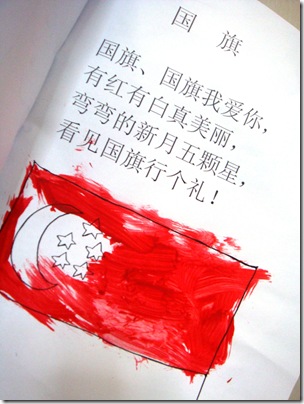 国 旗
国旗、国旗我爱你，
有红有白真美丽，
弯弯的新月五颗星，
看见国旗行个礼！